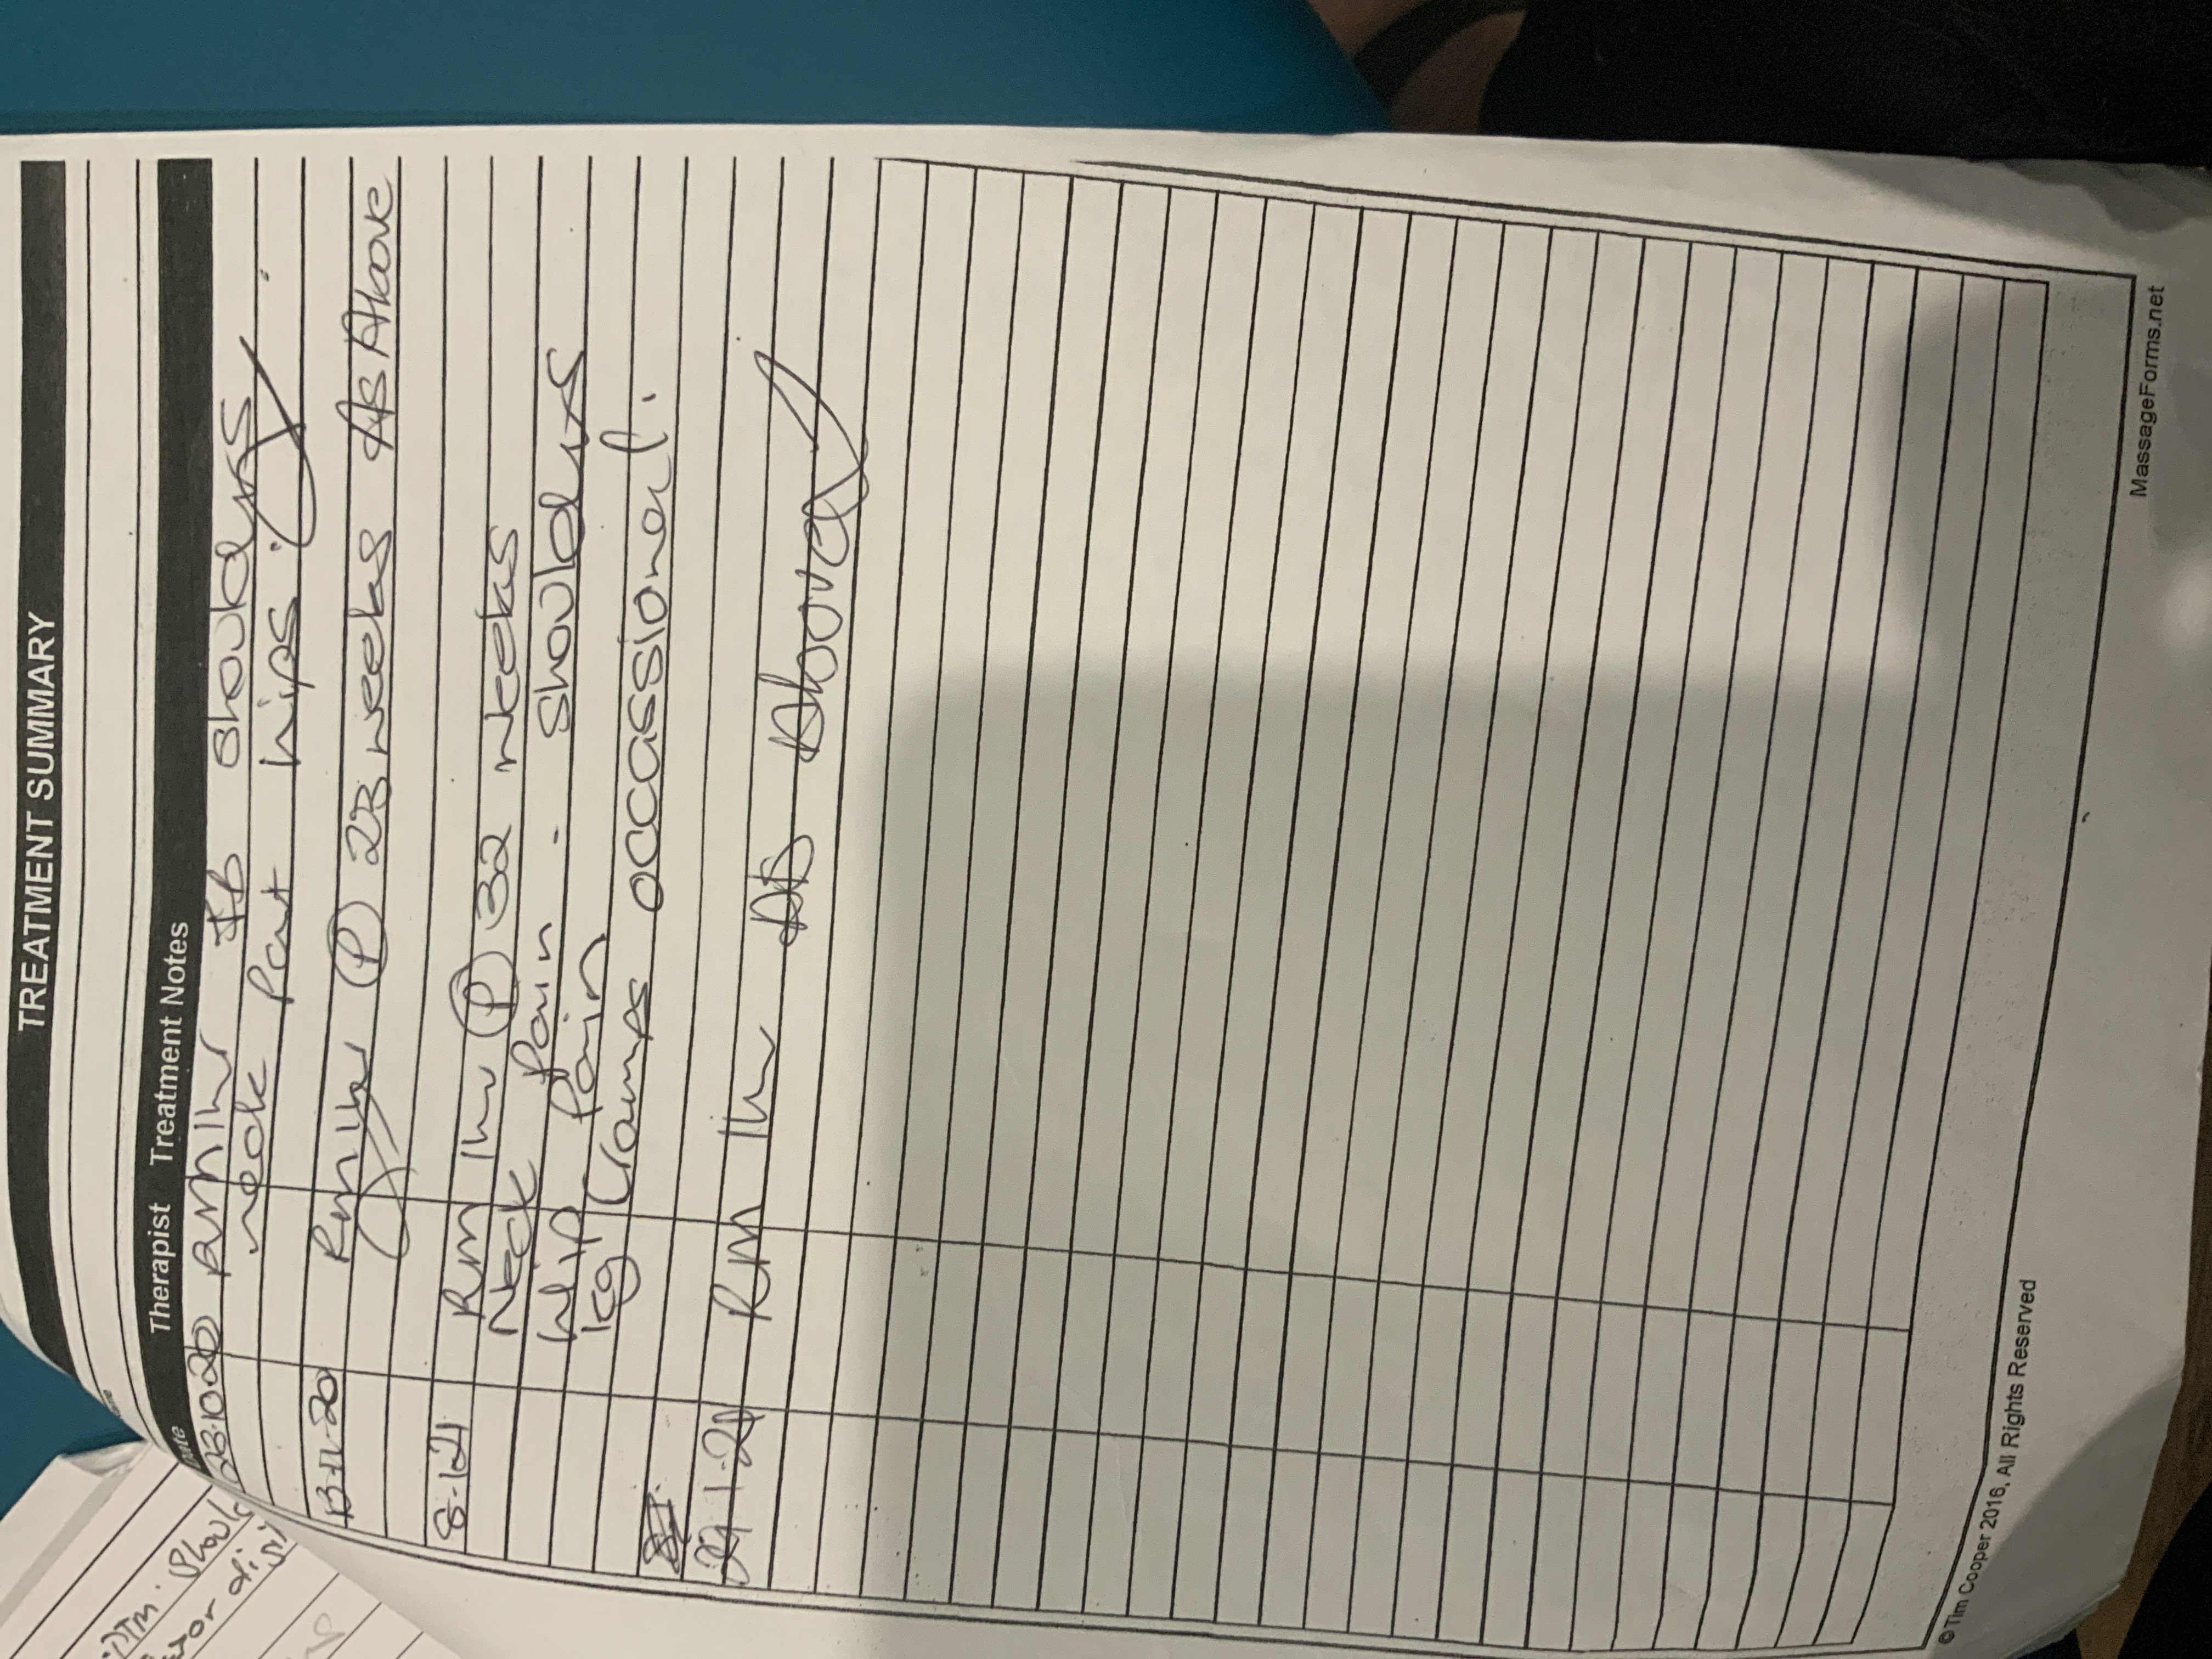 TREATMENT SUMMARY
Date Therapist Treatment Notes
23.10.20 RM 1hr LB shoulders
neck Part hips.
13-11-20 RM 1hr (P) 23 weeks AS Above
8-1-21 RM 1hr (P) 32 weeks
Neck Pain - shoulders
Hip Pain
leg Cramps occassional.
29 1-21 RM 1hr AS Above
©Tim Cooper 2016, All Rights Reserved MassageForms.net
DTM.
or